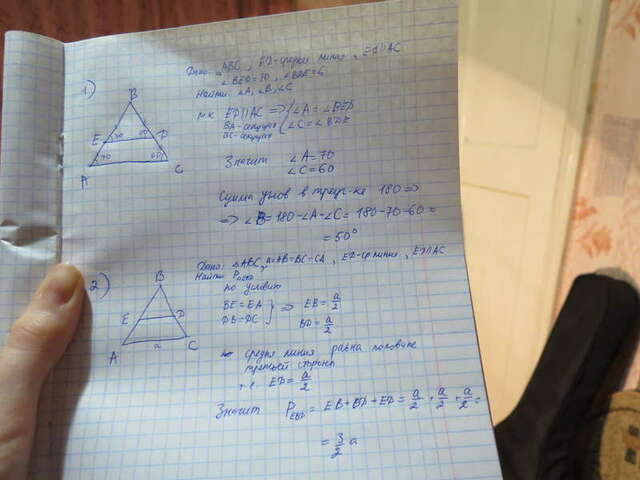 1)
Дано: △ABC, ED-средн линия, ED∥AC
∠BED=70, ∠BDE=6
Найти: ∠A, ∠B, ∠C
B
E 70 60 D
70 60
A C
тк ED∥AC ⇒ { ∠A = ∠BED
BA-секущая
BC-секущая { ∠C = ∠BDE
Значит ∠A=70
∠C=60
Сумма углов в треуг-ке 180 ⇒
⇒ ∠B=180-∠A-∠C= 180-70-60=
=50°
2)
Дано: △ABC, a=AB=BC=CA, ED-ср линия, ED∥AC
Найти P
по условию
B
E D
A a C
BE=EA
DB=DC } ⇒ EB=a/2
BD=a/2
средняя линия равна половине
третьей стороны
т.е. ED=a/2
Значит P_EBD = EB+BD+ED= a/2 + a/2 + a/2 =
= 3/2 a